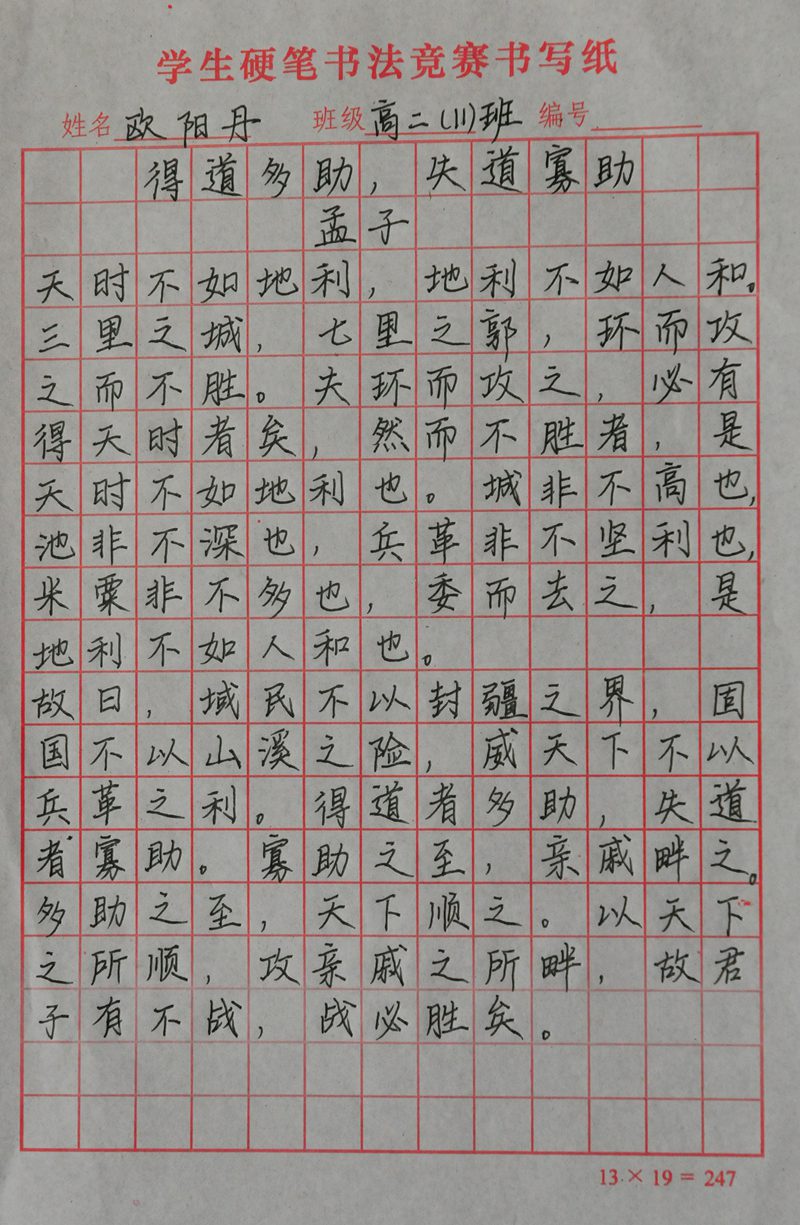 学生硬笔书法竞赛书写纸
姓名 欧阳丹 班级 高二(11)班 编号
得道多助，失道寡助
孟子
天时不如地利，地利不如人和。
三里之城，七里之郭，环而攻
之而不胜。夫环而攻之，必有
得天时者矣，然而不胜者，是
天时不如地利也。城非不高也，
池非不深也，兵革非不坚利也，
米粟非不多也，委而去之，是
地利不如人和也。
故曰，域民不以封疆之界，固
国不以山溪之险，威天下不以
兵革之利。得道者多助，失道
者寡助。寡助之至，亲戚畔之。
多助之至，天下顺之。以天下
之所顺，攻亲戚之所畔，故君
子有不战，战必胜矣。
13×19=247